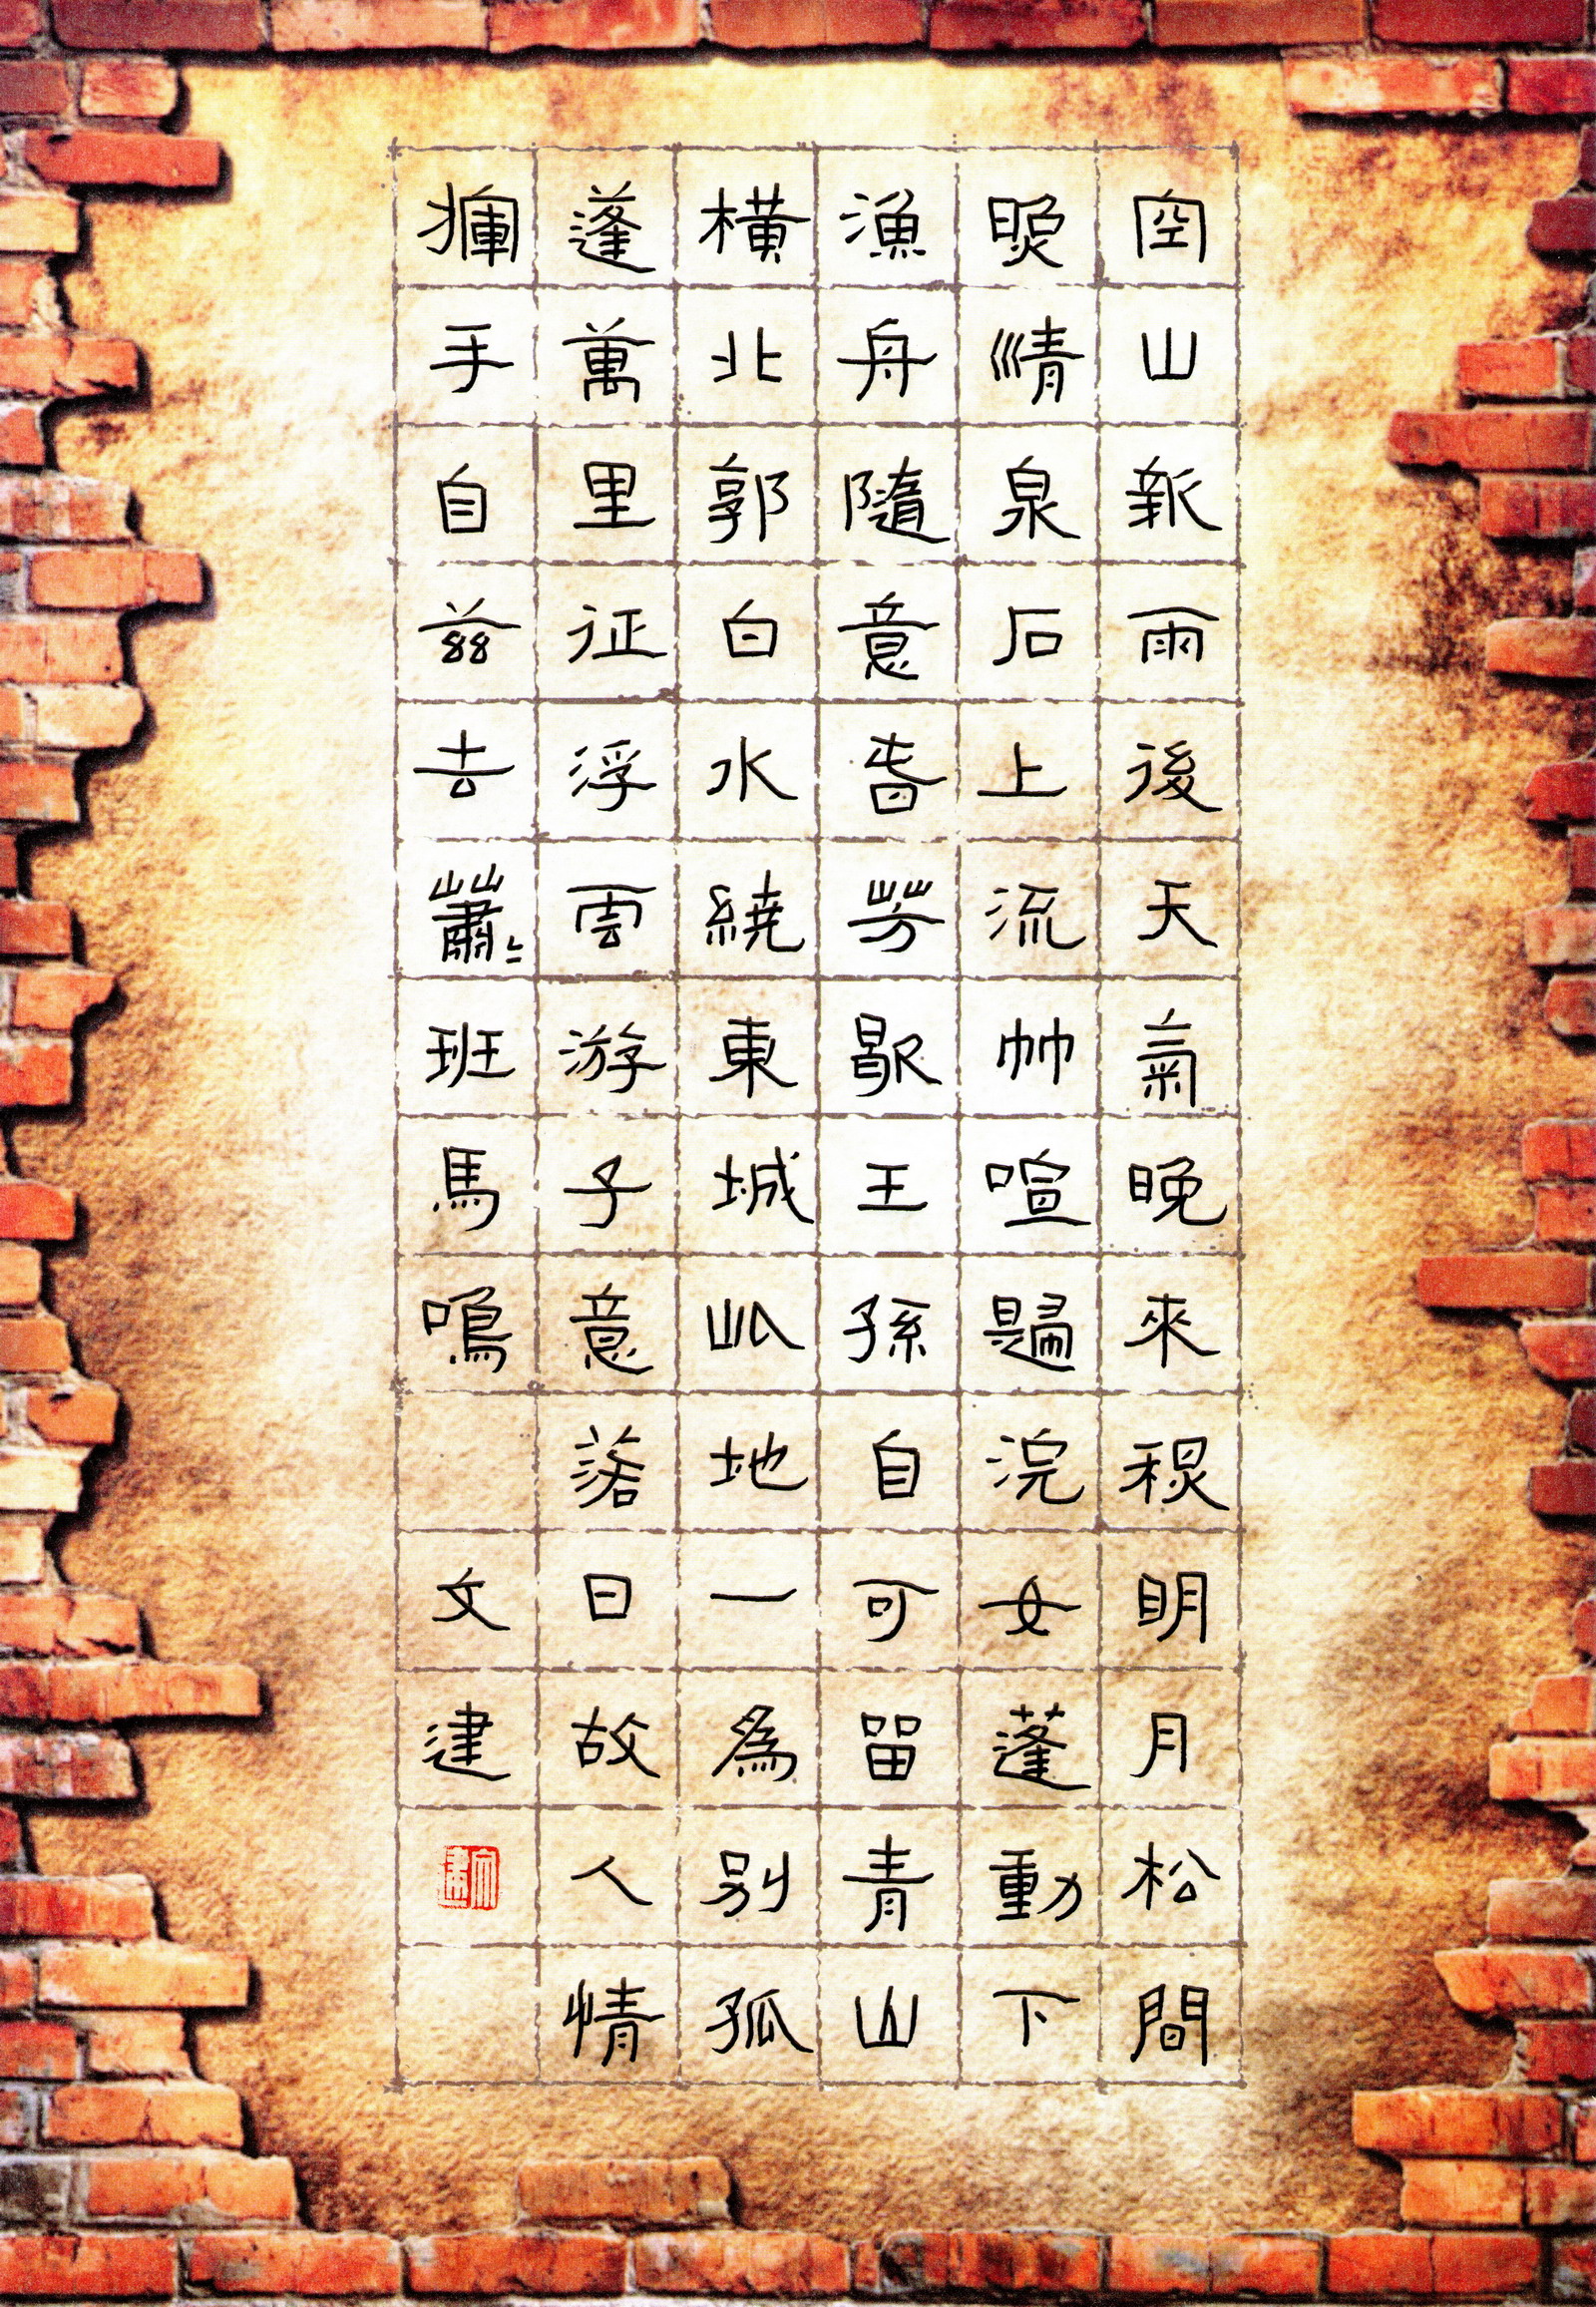 空山新雨後天氣晚來秋明月松間
照清泉石上流竹喧歸浣女蓮動下
漁舟隨意春芳歇王孫自可留青山
橫北郭白水繞東城此地一為別孤
蓬萬里征浮雲游子意落日故人情
揮手自茲去蕭〻班馬鳴
文建